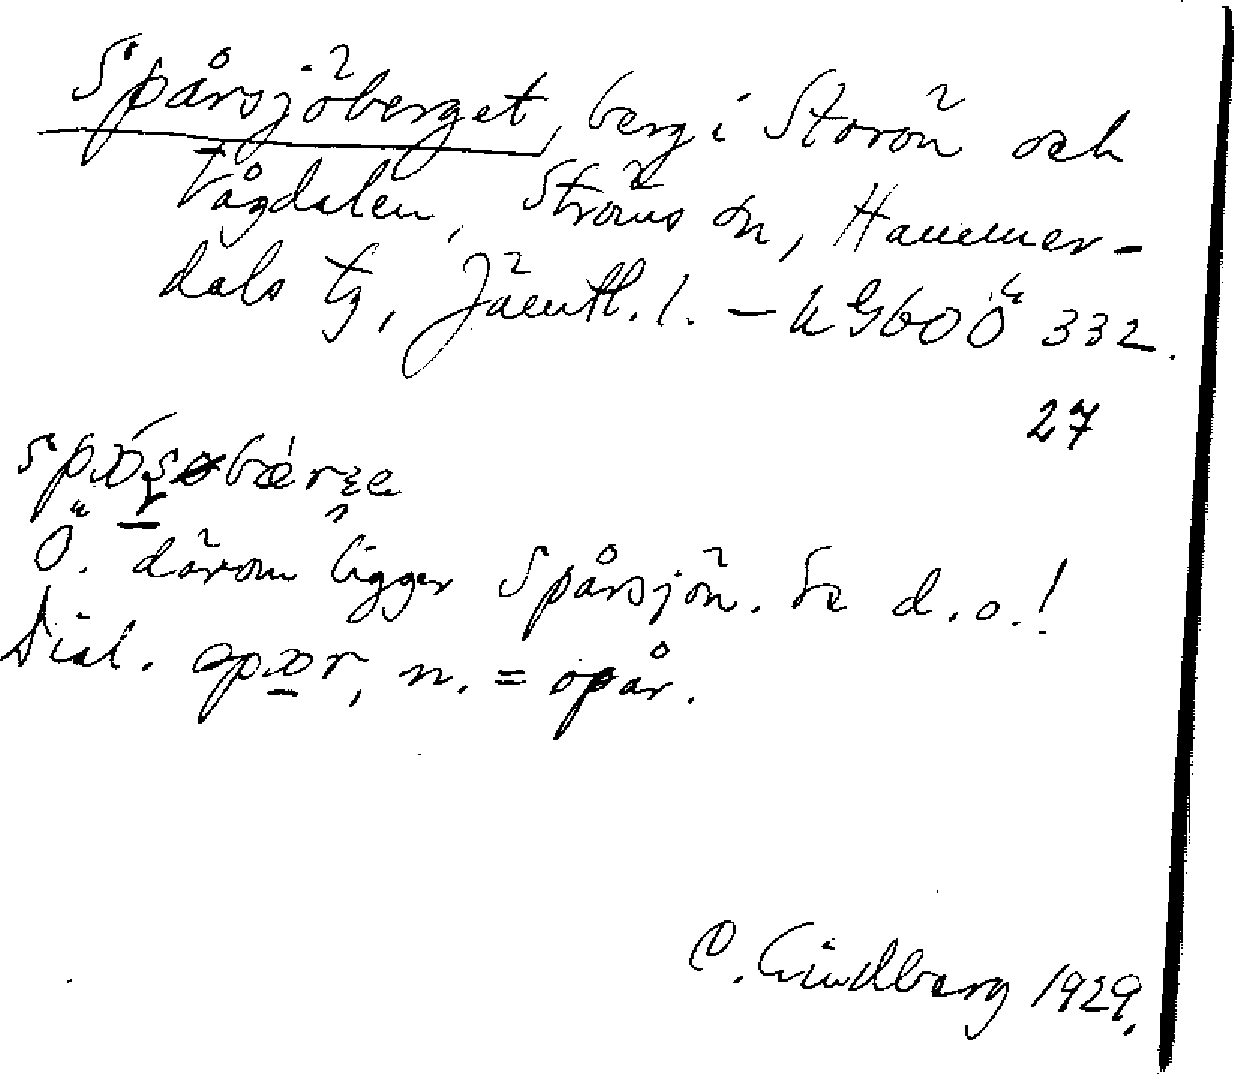 Spårsjöberget, berg i Storön och
Tågdalen, Ströms sn, Hammer-
dals tg, Jämtl. l. – k GboÖ 332.
27
Ö. därom ligger Spårsjön. Se d. o.!
Dial. spør, n. = spår.
O. Lindberg 1929.